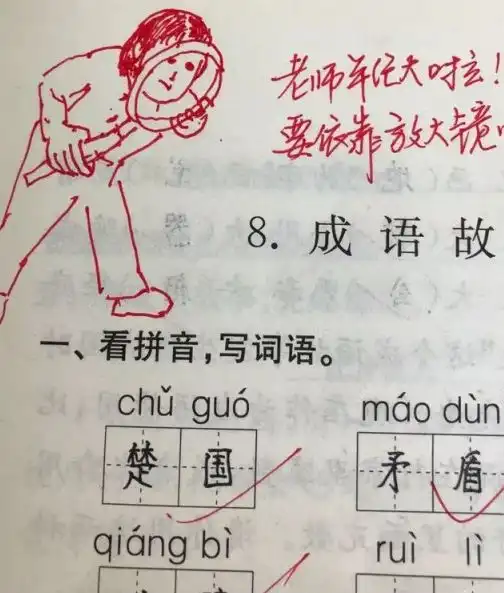 老师年纪大啦!
要依靠放大镜
8. 成语故
一、看拼音,写词语。
chǔ guó máo dùn
楚国 矛盾
qiáng bì ruì lì